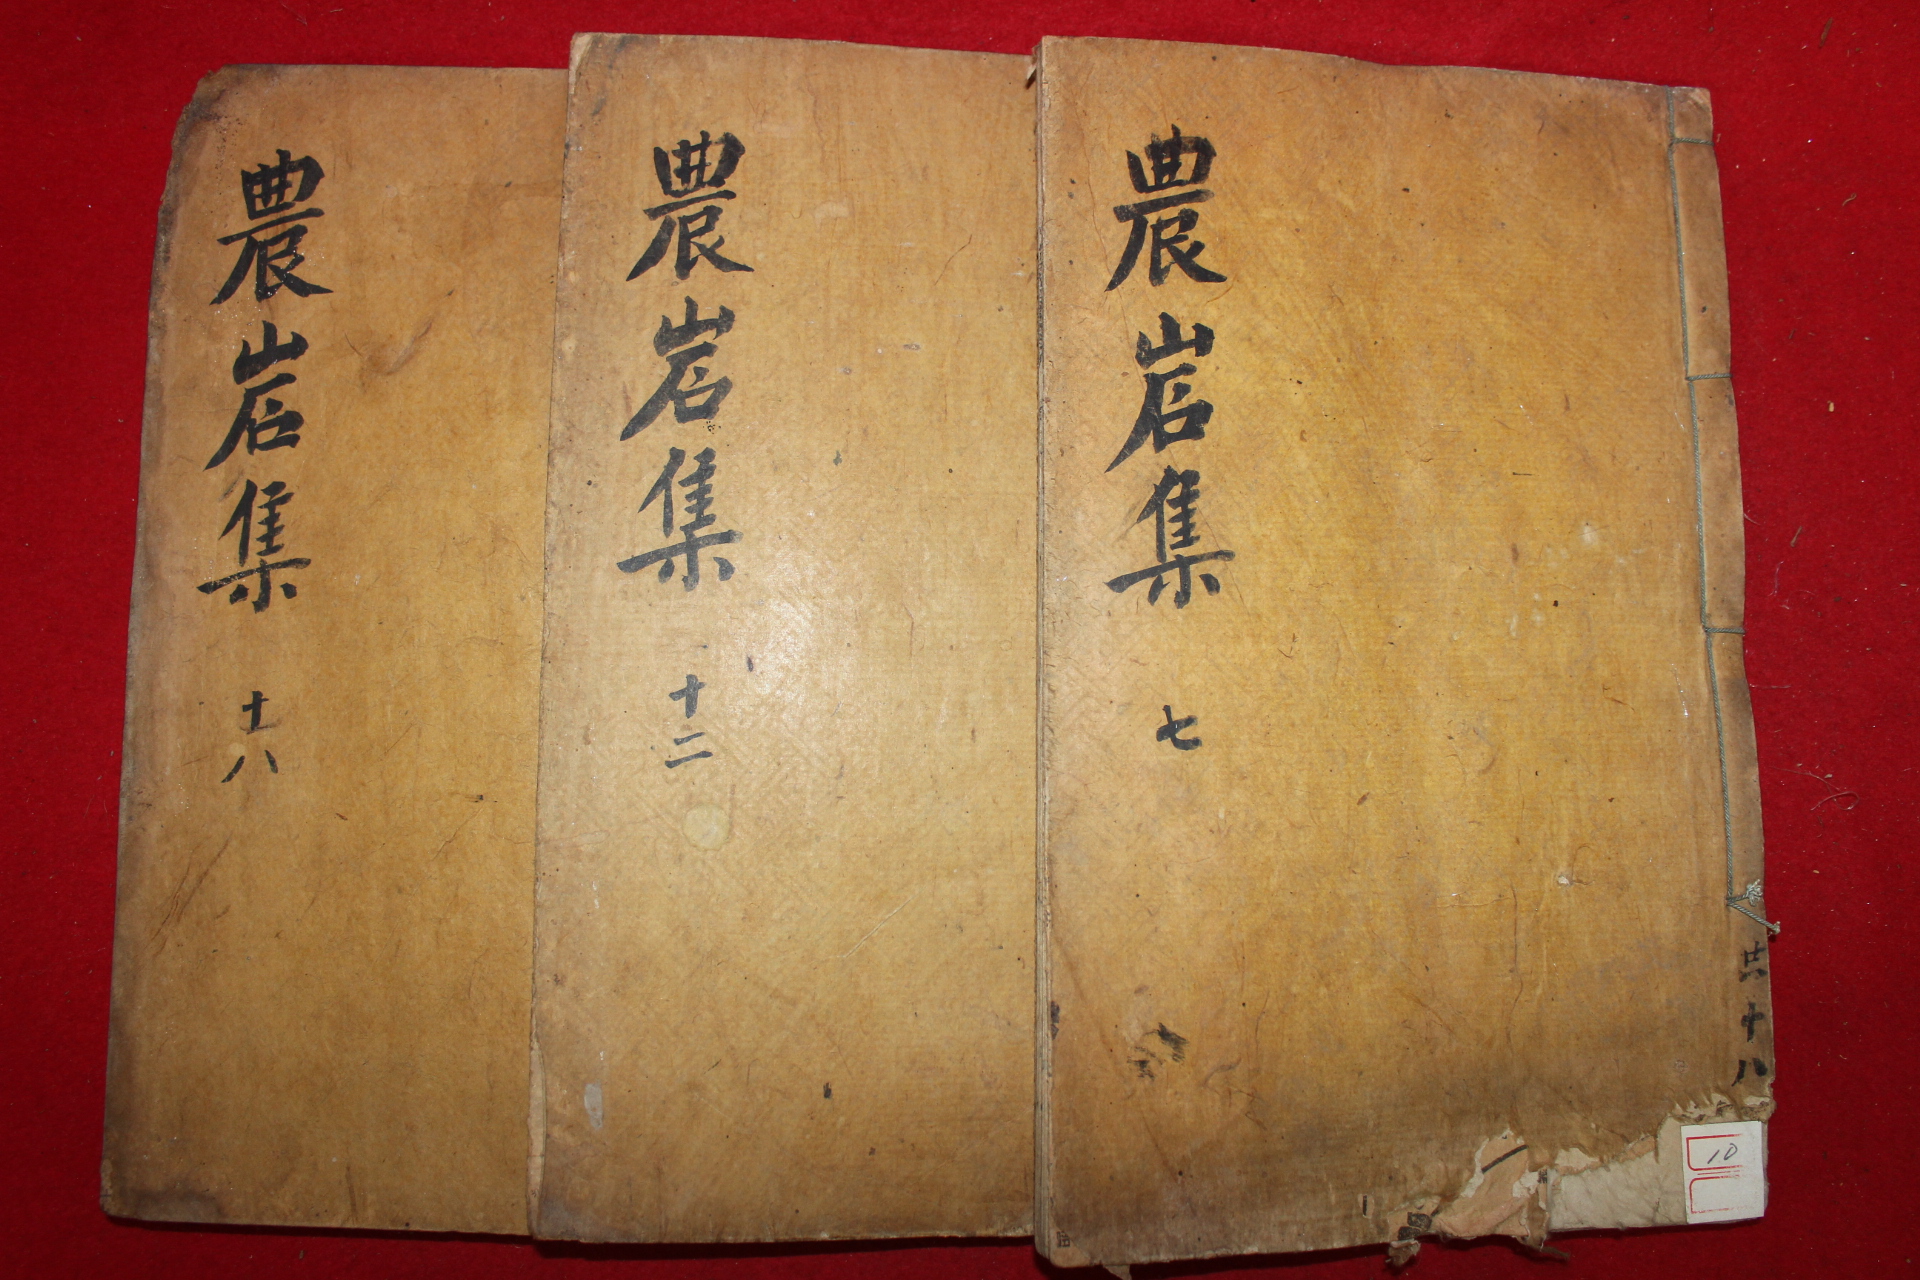 農岩集
七
共十八
10
農岩集
十二
農岩集
十八